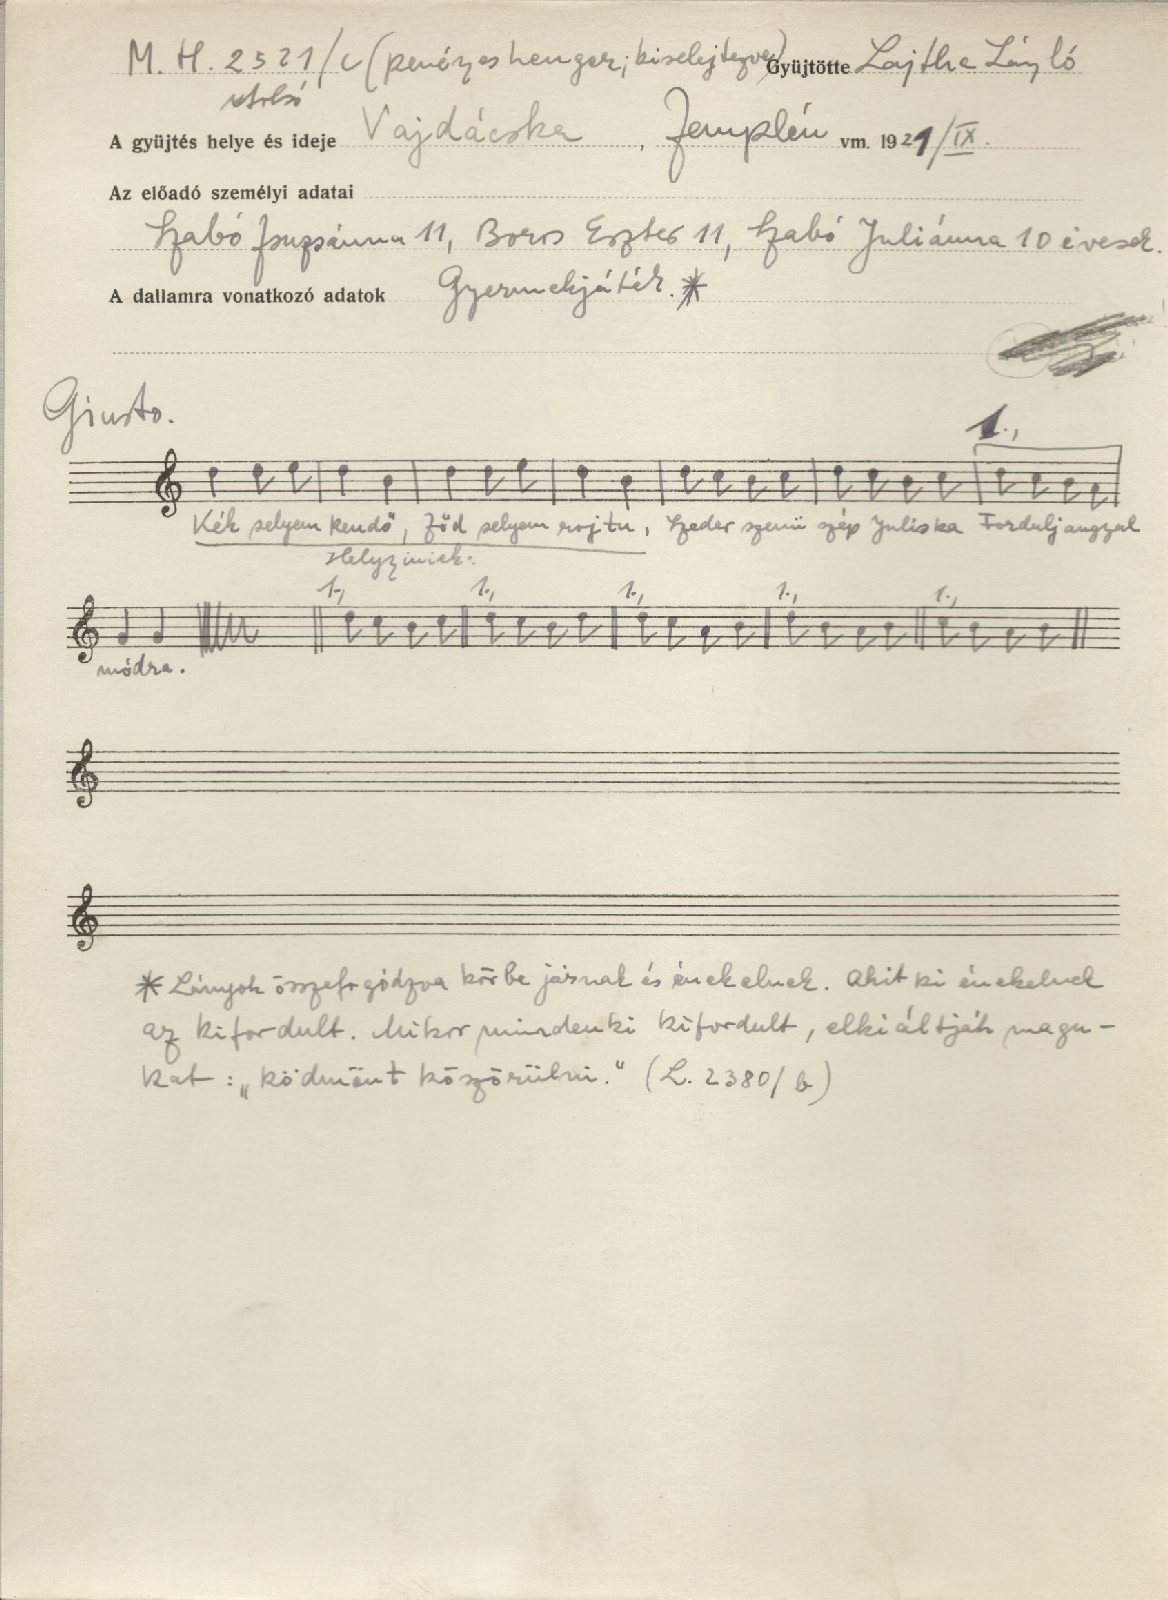 M. H. 2521/c (penészes henger, kiselejtezve) Gyűjtötte Lajtha László
utolsó
A gyüjtés helye és ideje Vajdácska, Zemplén vm. 1921/IX.
Az előadó személyi adatai
Szabó Zsuzsánna 11, Boros Eszter 11, Szabó Juliánna 10 évesek.
A dallamra vonatkozó adatok Gyermekjáték. *
Giusto.
1.,
Kék selyem kendő, Zöd selyem rojtu, Szeder szemü szép Juliska Fordulj angyal
Helyziniek:
1., 1., 1., 1., 1.,
módra.
* Lányok összefogódzva körbe járnak és énekelnek. Akit ki énekelnek
az kifordult. Mikor mindenki kifordult, elkiáltják magu-
kat: „ködmönt köszörülni." (L. 2380/b)